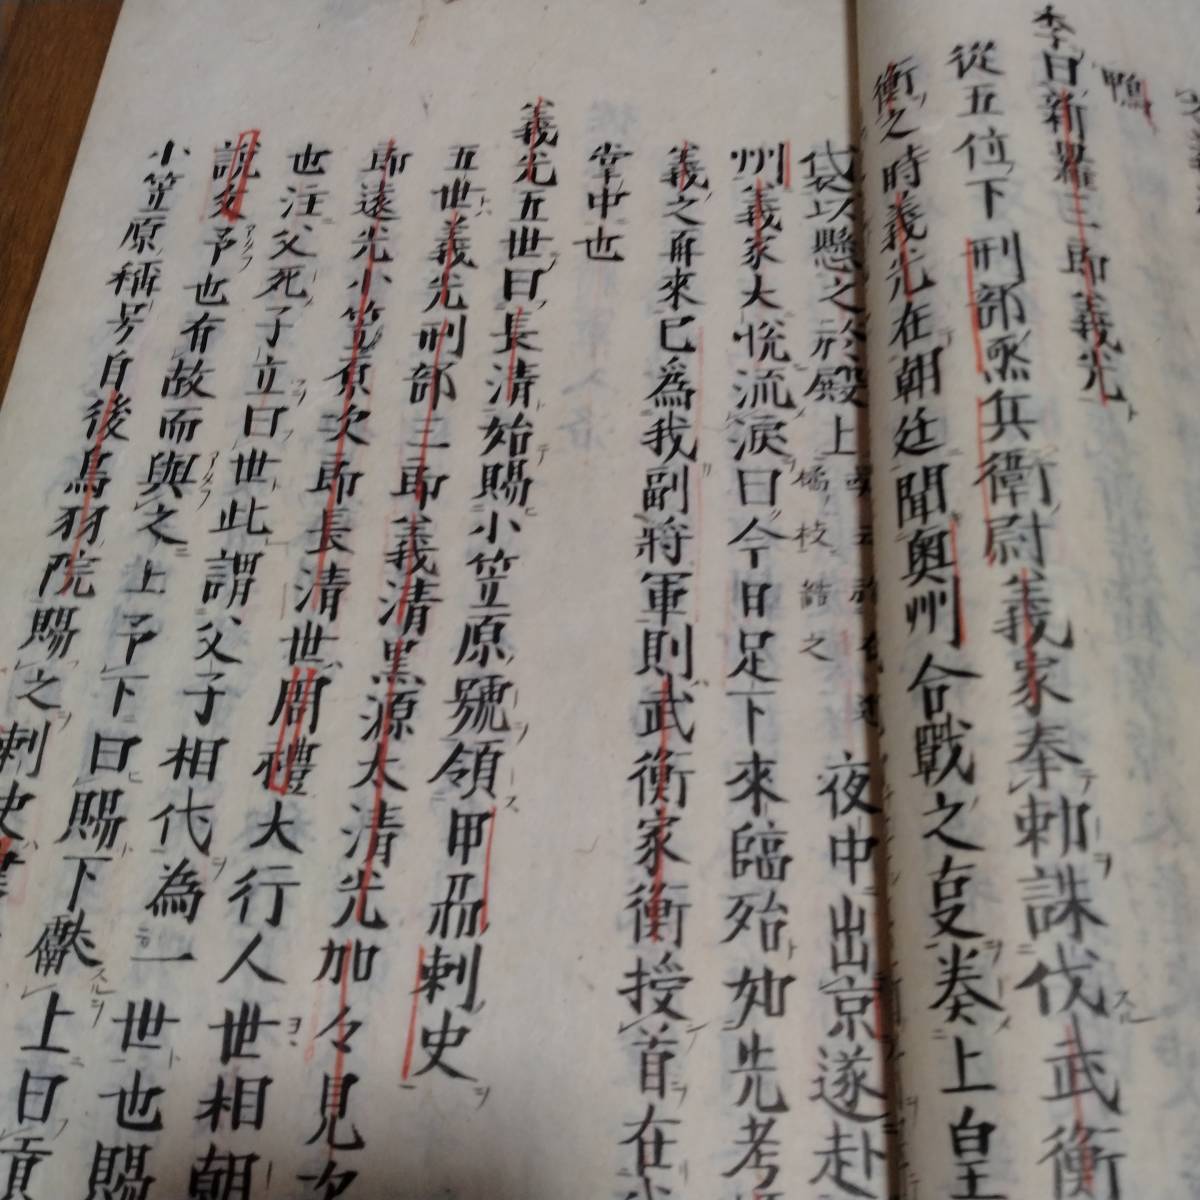 鴨
李曰新羅三郎義光
從五位下刑部烝兵衛尉義家奉勅誅伐武衡
衡之時義光在朝廷聞奥州合戰之
上皇
袋以懸之於殿上
橘枝
之
夜中出京遂赴
州義家大悦流涙曰今日足下來臨殆如先考
義之再來已為我副將軍則武衡家衡授首在
掌中也
義光五世曰長清始賜小笠原號領甲州刺史
五世義光刑部三郎義清黒源太清光加々見次
郎遠光小笠原次郎長清世周禮大行人世相朝
也注父死子立曰世此謂父子相代為一世也賜
說文予也有故而與之上予下曰賜下獻上曰貢
小笠原稱号自後鳥羽院賜之刺史